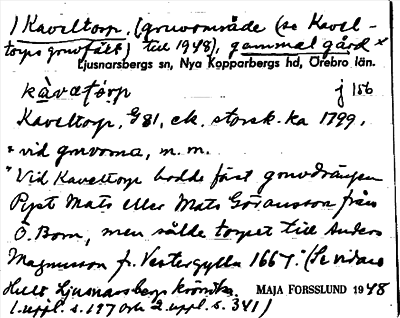 1 Kaveltorp, (gruvområde (se Kavel-
torps gruvfält) till 1948), gammal gård x
Ljusnarsbergs sn, Nya Kopparbergs hd, Örebro län.
kàvətòrp j 156
Kaveltorp, G81, ek. storsk. ka 1799,
x vid gruvorna, m. m.
"Vid Kaveltorp bodde först gruvdrängen
Ryst Mats eller Mats Göransson från
Ö. Born, men sålde torpet till Anders
Magnusson fr. Vestergylln 1667." (Se vidare
Hult Ljusnarsbergs krönika
1. uppl. s. 197 och 2. uppl. s. 341)
MAJA FORSSLUND 1948